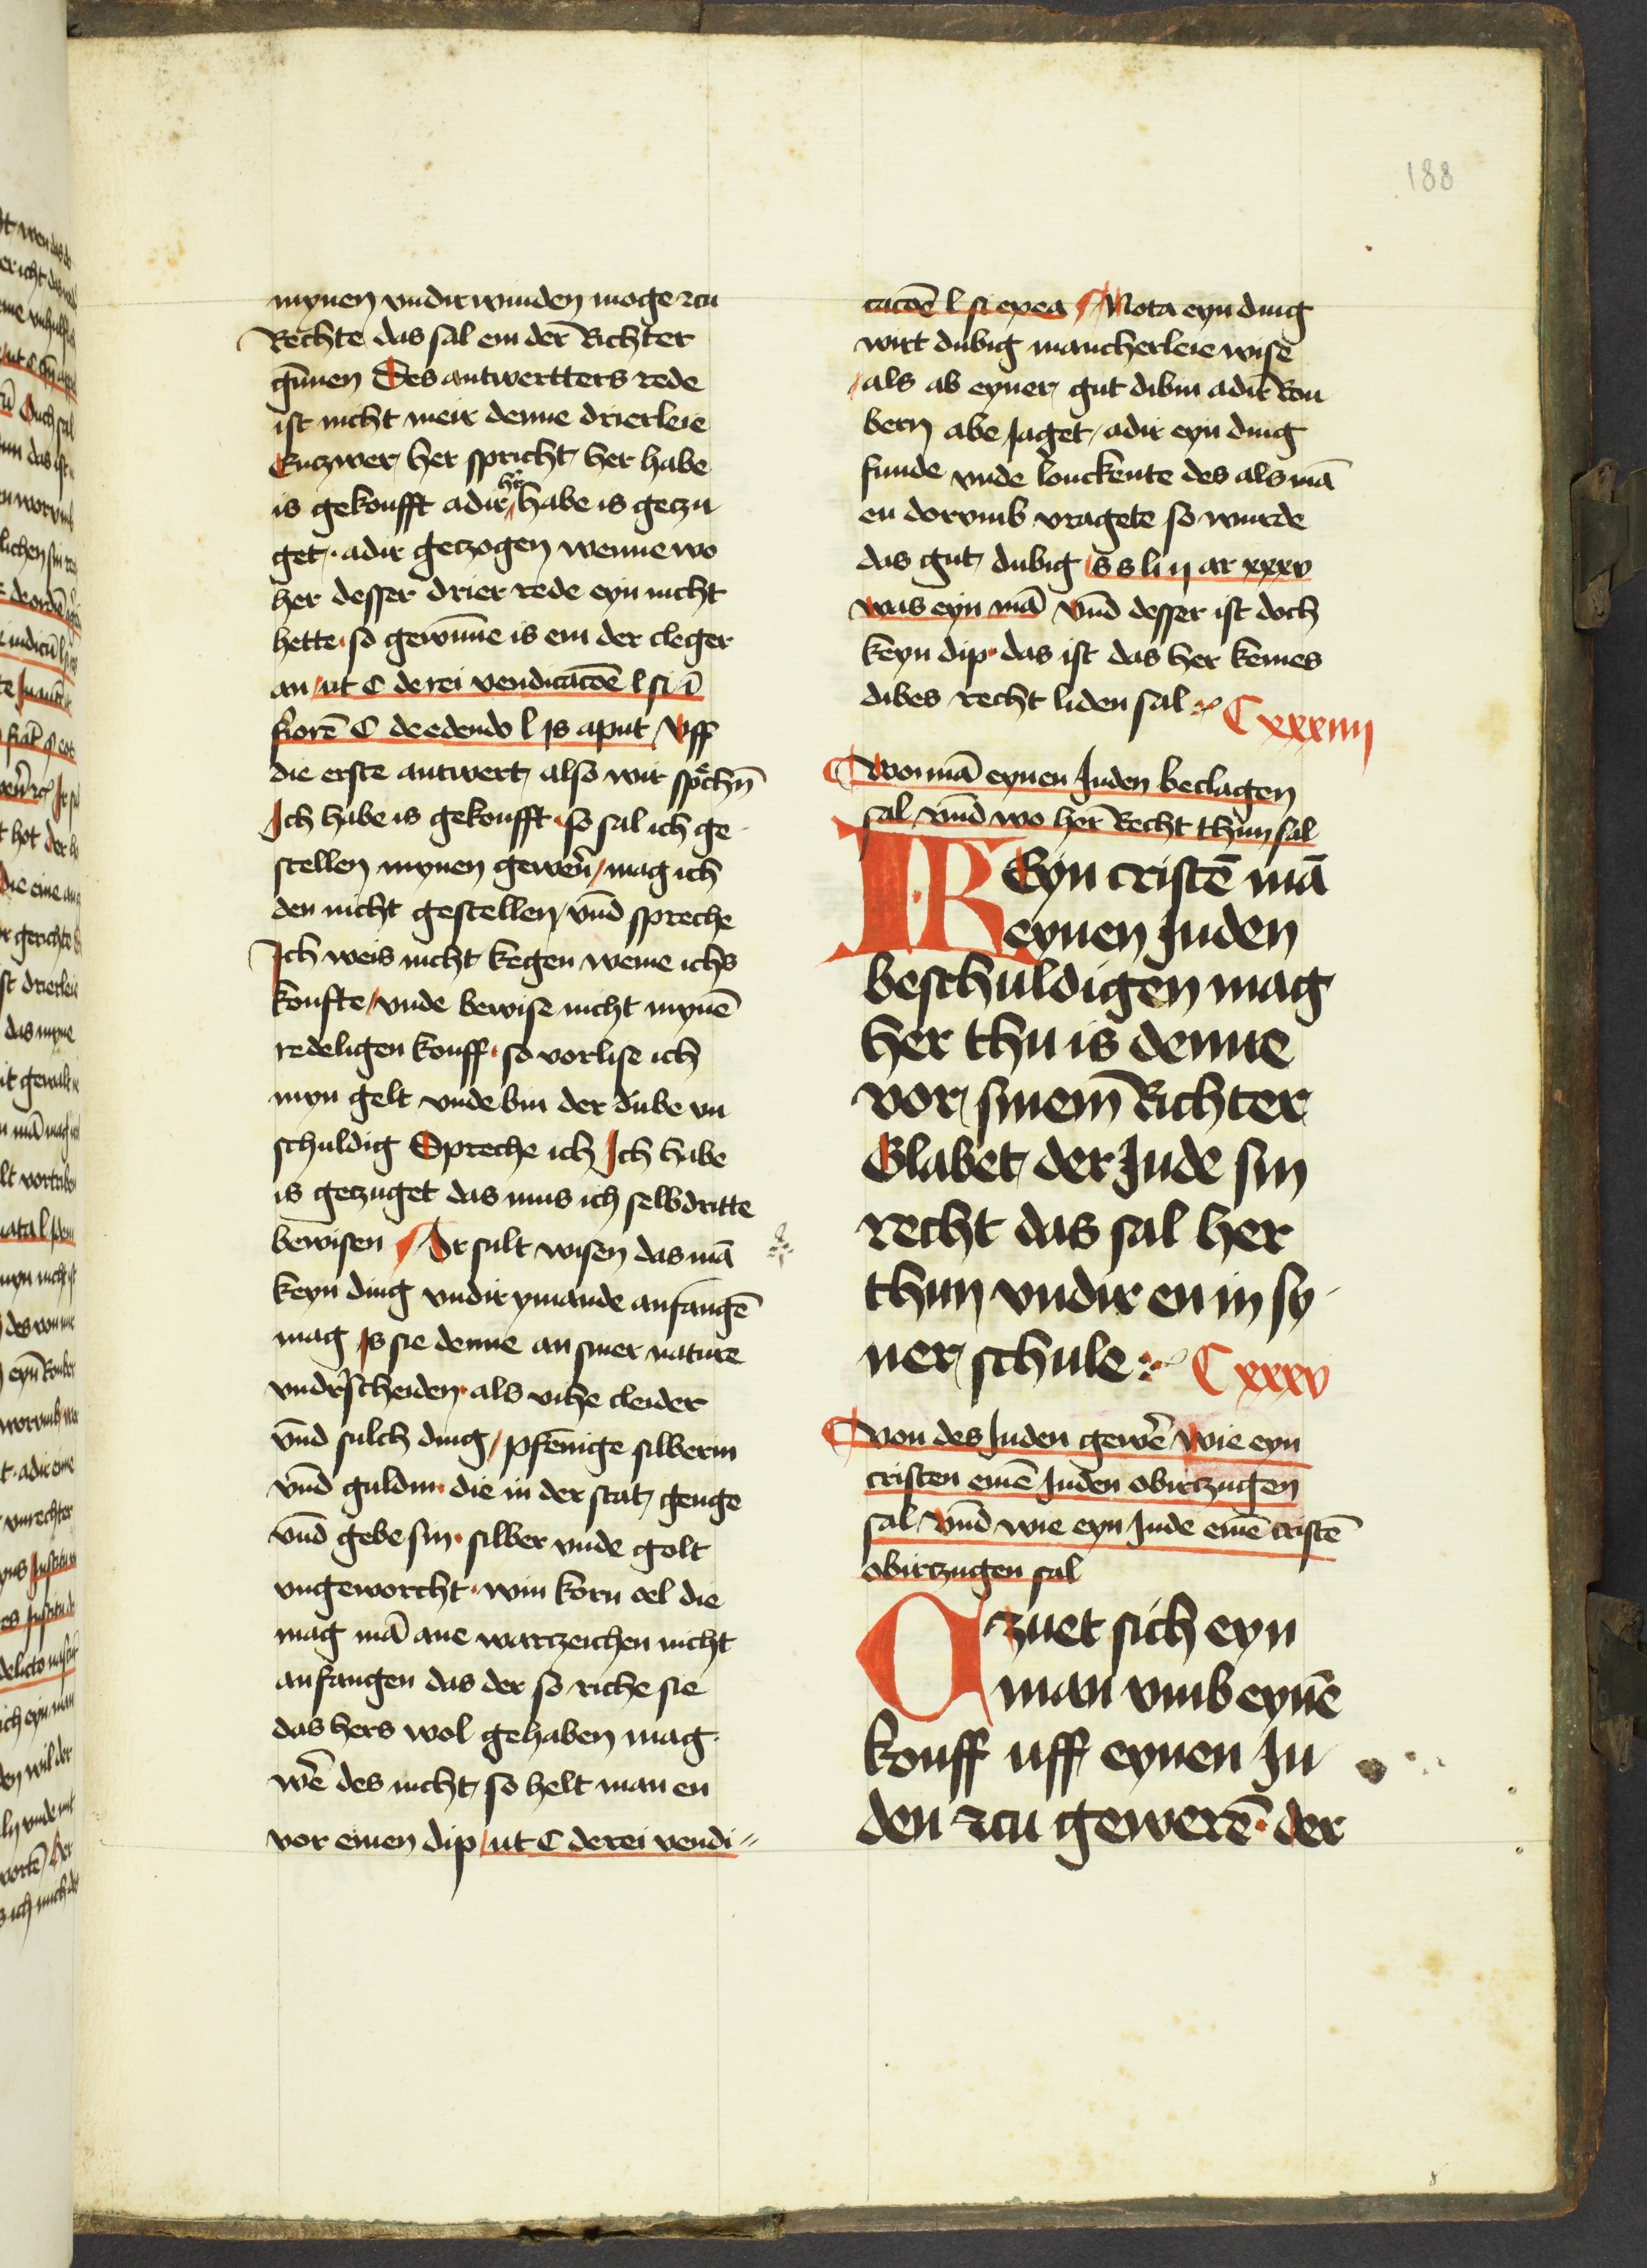 188
mynen vndirwinden moge zcu
Rechte das sal em der Richter
gūnen Des antwertters rede
ist nicht meir denne drierleie
Entzwer her spricht her habe
is gekoufft adir her habe is geczu
get · adir geczogen wenne wo
her desser drier rede eyn nicht
hette · so gewūne is em der cleger
an ut C de rei vendicacōe l si ī
fiorē C de edendo l is aput Vff
die erste antwert also wir spͤchn̄
Ich habe is gekoufft · so sal ich ge
stellen mynen gewer̄ / mag ich
den nicht gestellen vn̄d spreche
Ich weis nicht kegen weme ichs
koufte / vnde bewise nicht mynē
redeligen kouff · so vorlise ich
myn gelt vnde bin der dube vn
schuldig Spreche ich Ich habe
is geczuget das mus ich selbdritte
bewisen Ir sult wisen das mā
keyn ding vndir ymande anfangē
mag Is sie denne an siner nature
vndirscheiden · als vihe cleider
vn̄d sulch ding / pfēnige silberin
vn̄d guldin · die in der stat genge
vn̄d gebe sin · silber vnde golt
vngeworcht · win korn oel die
mag mā ane warczeichen nicht
anfangen das der so riche sie
das hers wol gehaben mag ·
wē des nicht so helt man en
vor einen dip / ut C de rei vendi
cacōē l si exea Nota eyn ding
wirt dubig mancherleie wise
als ab eyner gut dibin adir Rou
bern abe Jaget / adir eyn ding
funde vnde louckente des als mā
en dorvmb vragete so wurde
das gut dubig s s li ij ar xxxv
was eyn mā vn̄d desser ist doch
keyn dip · das ist das her keines
dibes recht liden sal
Cxxxiiij
Wo mā eynen Juden beclagen
sal vn̄d wo her Recht thun sal
IR Eyn cristē mā
eynen Juden
beschuldigen mag
her thu is denne
vor sinem̄ Richter
Glabet der Jude sin
recht das sal her
thun vndir en in sy
ner schule
Cxxxv
Von des Juden gewer̄ Wie eyn
cristen einē Juden obirczugen
sal vn̄d wie eyn Jude einē cristē
obirczugen sal
Czuet sich eyn
man vmb eynē
kouff uff eynen Ju
den zcu gewerē · der